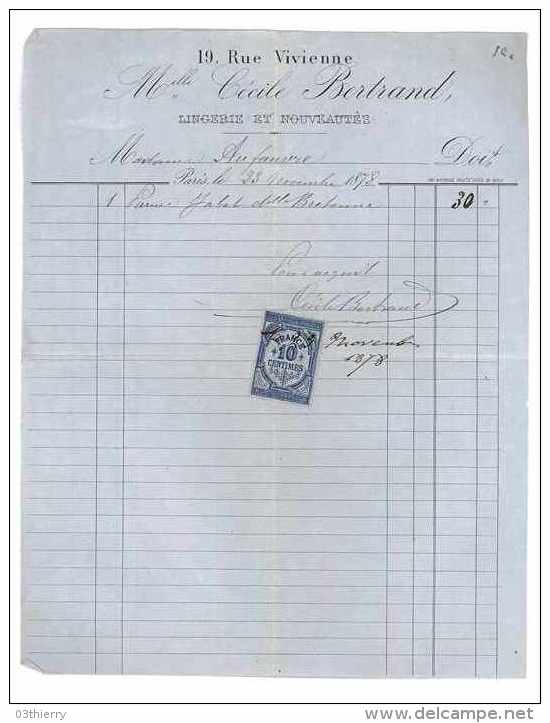 19, Rue Vivienne
Melle Cécile Bertrand,
LINGERIE ET NOUVEAUTÉS
Madame Aufauvre Doit
Paris, le 23 novembre 1878
1 30 "
Pour acquit
Cécile Bertrand
novembre
1878
FRANCE
10
CENTIMES
03thierry
www.delcampe.net